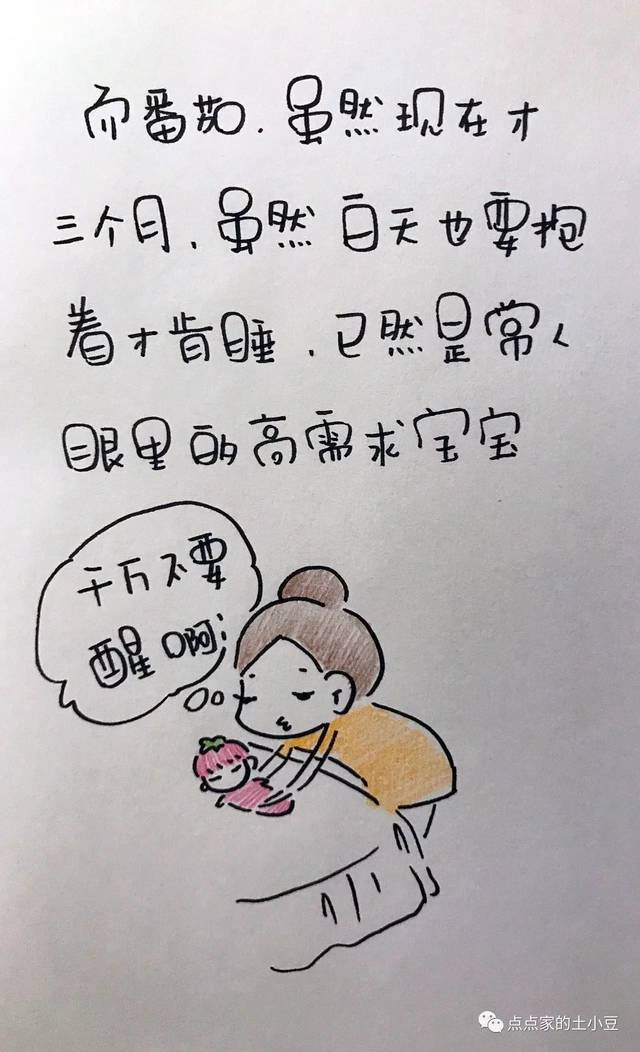 而番茄、虽然现在才
三个月、虽然白天也要抱
着才肯睡、已然是常人
眼里的高需求宝宝
千万不要
醒啊；
点点家的土小豆